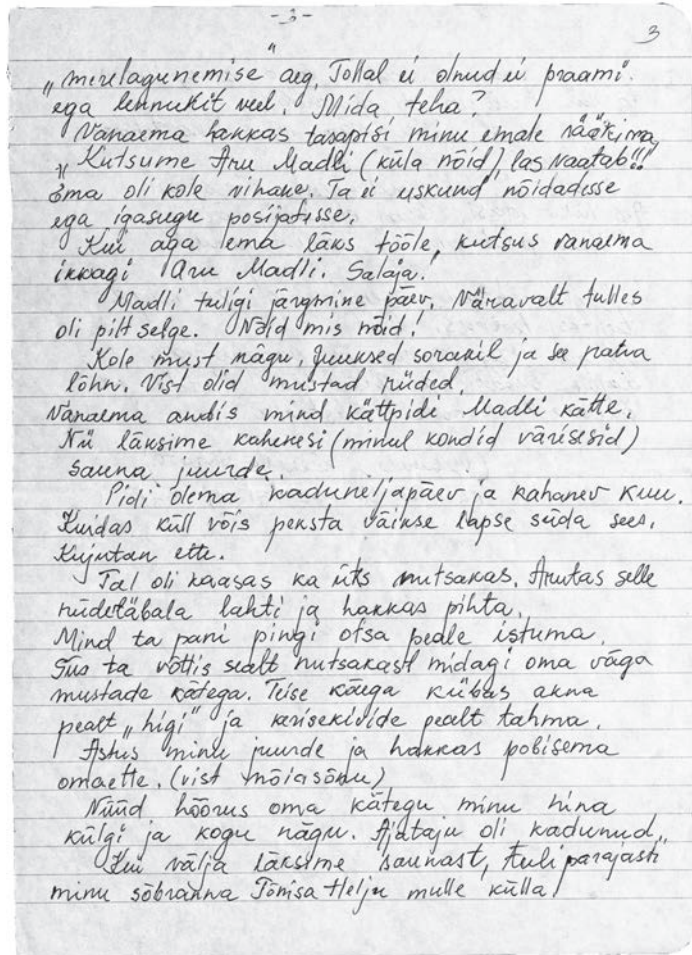 -3-
3
„merelagunemise" aeg. Tollal ei olnud ei praami
ega lennukit veel. Mida teha?
Vanaema hakkas tasapisi minu emale rääkima,
„Kutsume Aru Madli (küla nõid), las vaatab!!!
Ema oli kole vihane. Ta ei uskund nõidadesse
ega igasugu posijatesse.
Kui aga ema läks tööle, kutsus vanaema
ikkagi Aru Madli. Salaja!
Madli tuligi järgmine päev. Väravalt tulles
oli pilt selge. Nõid mis nõid!
Kole must nägu, juuksed sorakil ja see paha
lõhn. Vist olid mustad riided.
Vanaema andis mind kättpidi Madli kätte.
Nii läksime kahekesi (minul kondid värisesid)
sauna juurde.
Pidi olema kaduneljapäev ja kahanev kuu.
Kuidas küll võis peksta väikse lapse süda sees.
Kujutan ette.
Tal oli kaasas ka üks nutsakas. Arutas selle
riidetäbala lahti ja hakkas pihta.
Mind ta pani pingi otsa peale istuma.
Siis ta võttis sealt nutsakast midagi oma väga
mustade kätega. Teise käega kübas akna
pealt „higi" ja kerisekivide pealt tahma.
Astus minu juurde ja hakkas pobisema
omaette. (vist nõiasõnu)
Nüüd hõõrus oma kätega minu nina
külgi ja kogu nägu. Ajataju oli kadunud.
Kui välja läksime saunast, tuli parajasti
minu sõbranna Tõnisa Helju mulle külla